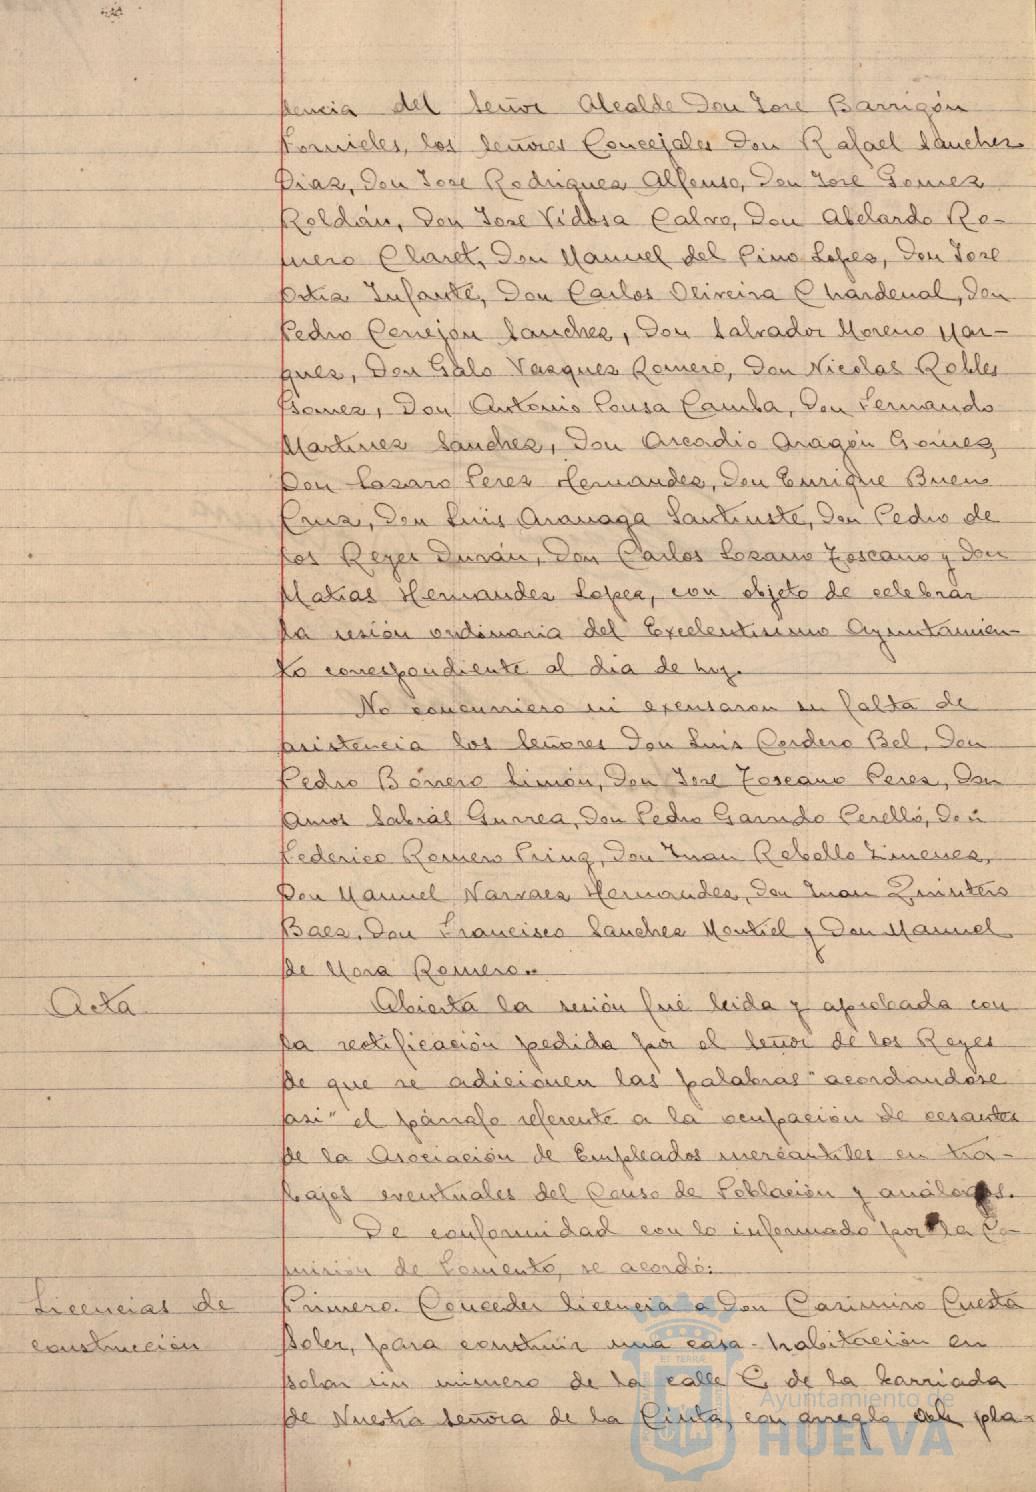 dencia del Señor Alcalde Don Jose Barrigón
Fornieles, los Señores Concejales Don Rafael Sanchez
Diaz, Don Jose Rodriguez Alfonso, Don Jose Gomez
Roldán, Don Jose Vidosa Calvo, Don Abelardo Ro-
mero Claret, Don Manuel del Pino Lopez, Don Jose
Ortiz Infante, Don Carlos Oliveira Chardenal, Don
Pedro Cerrejon Sanchez, Don Salvador Moreno Mar-
quez, Don Galo Vazquez Romero, Don Nicolas Robles
Gomez, Don Antonio Pousa Camba, Don Fernando
Martinez Sanchez, Don Arcadio Aragón Gómez
Don Lazaro Perez Hernandez, Don Enrique Bueno
Cruz, Don Luis Aranaga Santiuste, Don Pedro de
los Reyes Durán, Don Carlos Lozano Toscano y Don
Matias Hernandez Lopez, con objeto de celebrar
la sesión ordinaria del Excelentisimo Ayuntamien-
to correspondiente al dia de hoy.
No concurriero ni excusaron su falta de
asistencia los Señores Don Luis Cordero Bel, Don
Pedro Borrero Limón, Don Jose Toscano Perez, Don
Amos Sabrás Gurrea, Don Pedro Garrido Perelló, Don
Federico Romero Prinz, Don Juan Rebollo Jimenez,
Don Manuel Narvaez Hernandez, Don Juan Quintero
Baez, Don Francisco Sanchez Montiel y Don Manuel
de Mora Romero.
Acta
Abierta la sesión fué leida y aprobada con
la rectificación pedida por el Señor de los Reyes
de que se adicionen las palabras "acordandose
asi" el párrafo referente a la ocupación de cesantes
de la Asociación de Empleados mercantiles en tra-
bajos eventuales del Censo de Población y análogos.
De conformidad con lo informado por la Co-
misión de Fomento, se acordó:
Licencias de
construcción
Primero. Conceder licencia a Don Casimiro Cuesta
Soler, para construir una casa-habitación en
solar sin numero de la calle C de la barriada
de Nuestra Señora de la Cinta, con arreglo pla-
Ayuntamiento de
HUELVA